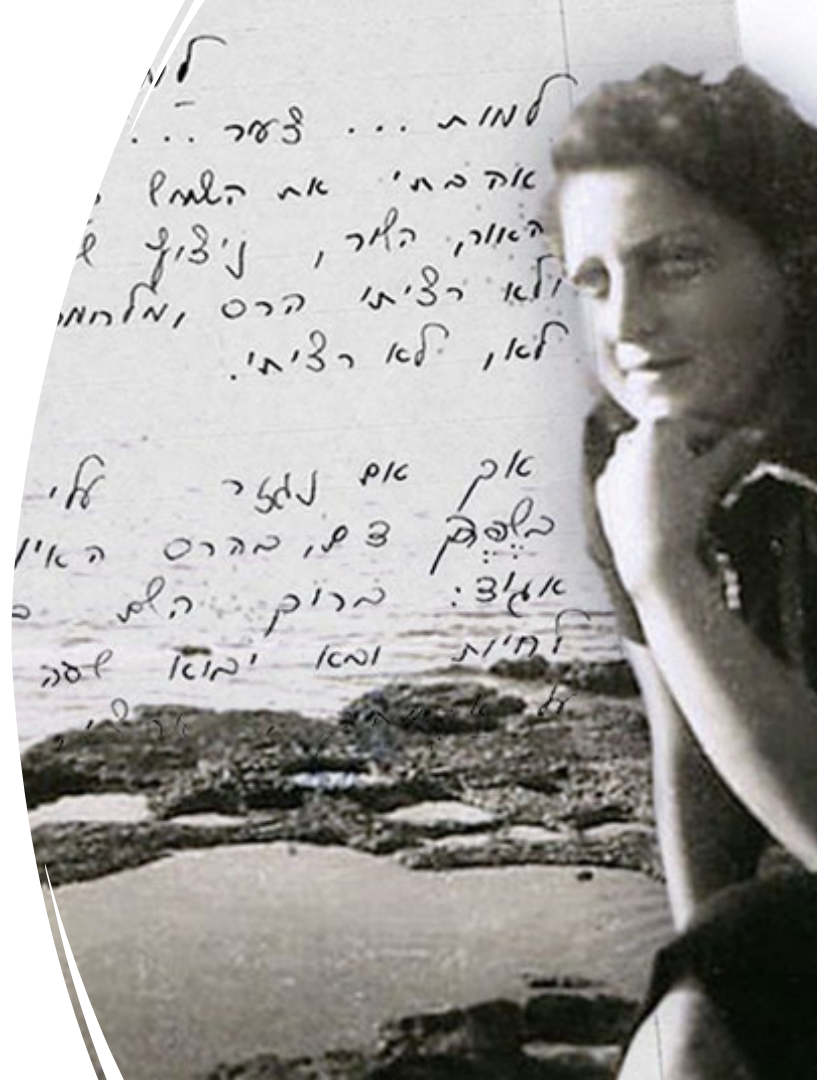 למות ... צעיר ...
אהבתי את השמש
האור, השיר, ניצוץ
ולא רציתי הרס ,מלחמ
לא, לא רציתי.
אך אם נגזר עלי
בשפך דם, בהרס האיו
אגיד: ברוך השם
לחיות ובא יבוא שעה
על